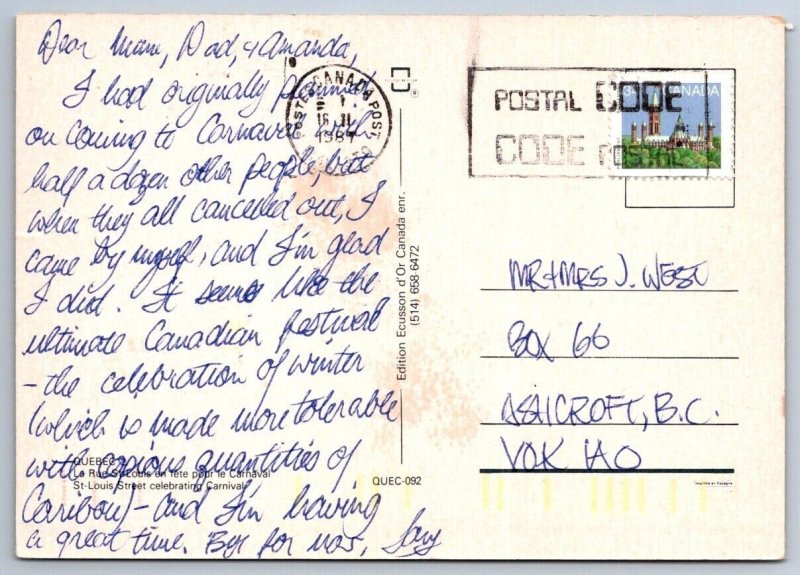 Dear Mum, Dad, & Amanda,
I had originally planned
on coming to Carnaval with
half a dozen other people, but
when they all cancelled out, I
came by myself, and I'm glad
I did. It seems like the
ultimate Canadian festival
- the celebration of winter
(which is made more tolerable
with copious quantities of
Caribou) - and I'm having
a great time. Bye for now,
QUEBEC
La Rue St-Louis en fête pour le Carnaval
St-Louis Street celebrating Carnival
QUEC-092
Edition Ecusson d'Or Canada enr.
(514) 658-6472
POSTES CANADA POST
16 II
1987
POSTAL CODE
CODE POSTAL
34 CANADA
MR & MRS J. WEST
BOX 66
ASHCROFT, B.C.
V0K 1A0
Imprimé en Espagne